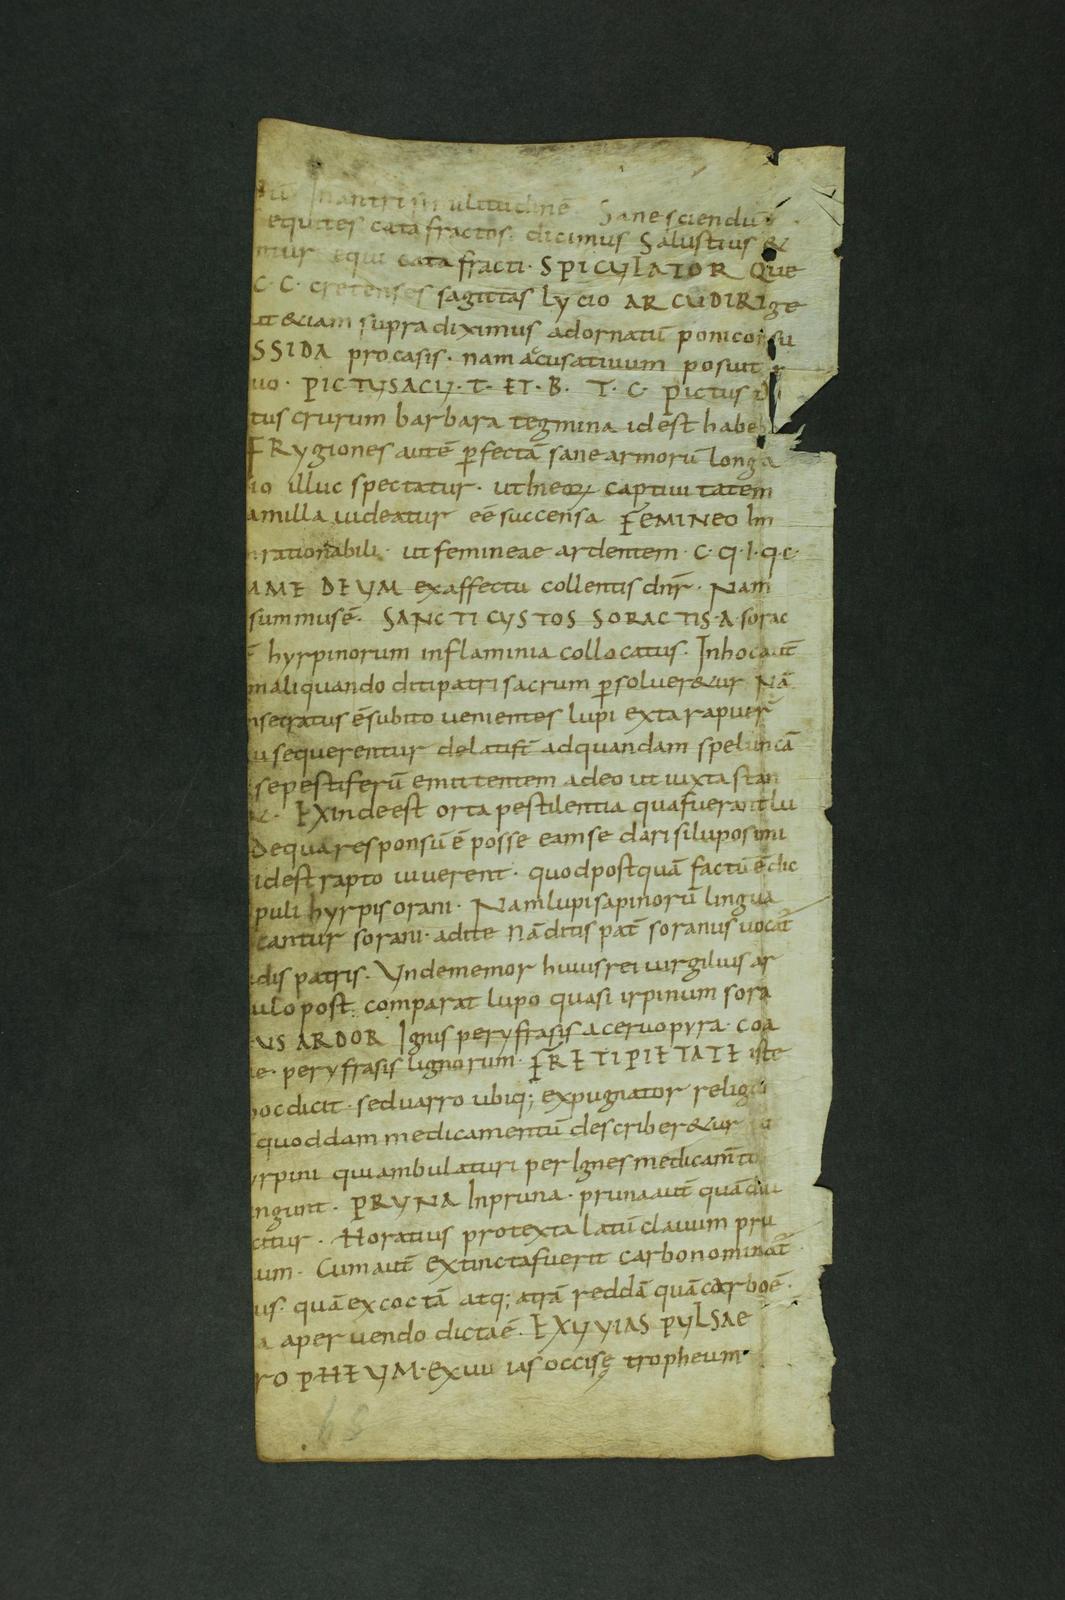 Sane sciendū
equites catafractos dicimus Salustius &
ntur equi catafracti · SPICULATOR Que
C · C · cretenses sagittas lycio ARCUDIRIge
ut &iam supra diximus adornatū
SSIDA procasis · nam acusativum posuit
uo · PICTUSACU · T · ET · B · T · C · pictus
tus crurum barbara tegmina idest habe
FRygiones autē pfectā sane armorū longa
io illuc spectatur · ut captiuitatem
amilla uideatur eē succensa FEMINEO In
nrationabili · ut femineae ardentem · C · q · l · q · c ·
AME DEUM exaffectu collentis · Nam
summusē · SANCTI CUSTOS SORACTIS · A · sorac
hyrpinorum inflaminia collocatus · Inhocaut̄
maliquando ditipatri sacrum psoluer&ur Nā
nsecratus ēsubito uenientes lupi exta rapuer̄
u sequerentur delatiſt̄ adquandam speluncā
sepestiferū emittentem adeo ut iuxta stan
&c · EXinde est orta pestilentia quafuerantlu
Dequa responsū ē posse eamse dari siluposimi
idest rapto uiuerent · quodpostquā factū ē dic
puli hyrpisorani · Namlupisapinorū lingua
cantur sorani · adite nā ditis pat̄ soranus uocat̄
dis patris · Vndememor huiusrei uirgilius ar
ulo post comparat lupo quasi irpinum sora
US ARDOR Ignis peryfrasis aceruo pyra · coa
e · peryfrasis lignorum · FRETIPIETATE iste
oc dicit · seduarro ubiq; expugnator religi
quoddam medicamentū describer&ur
yrpini quiambulaturi per Ignes medicam̄to
ngunt · PRUNA Inpruna · prunaaut̄ quādiu
citur · Horatius protexta latū clauum pru
um · Cum aut̄ extinctafuerit carbonominat̄ ·
us · quā excoctā atq; atrā reddā quā carboē ·
a aperuendo dictaē · EXUVIAS PULSAE
RO PHEUM · exuuias occisę tropheum ·